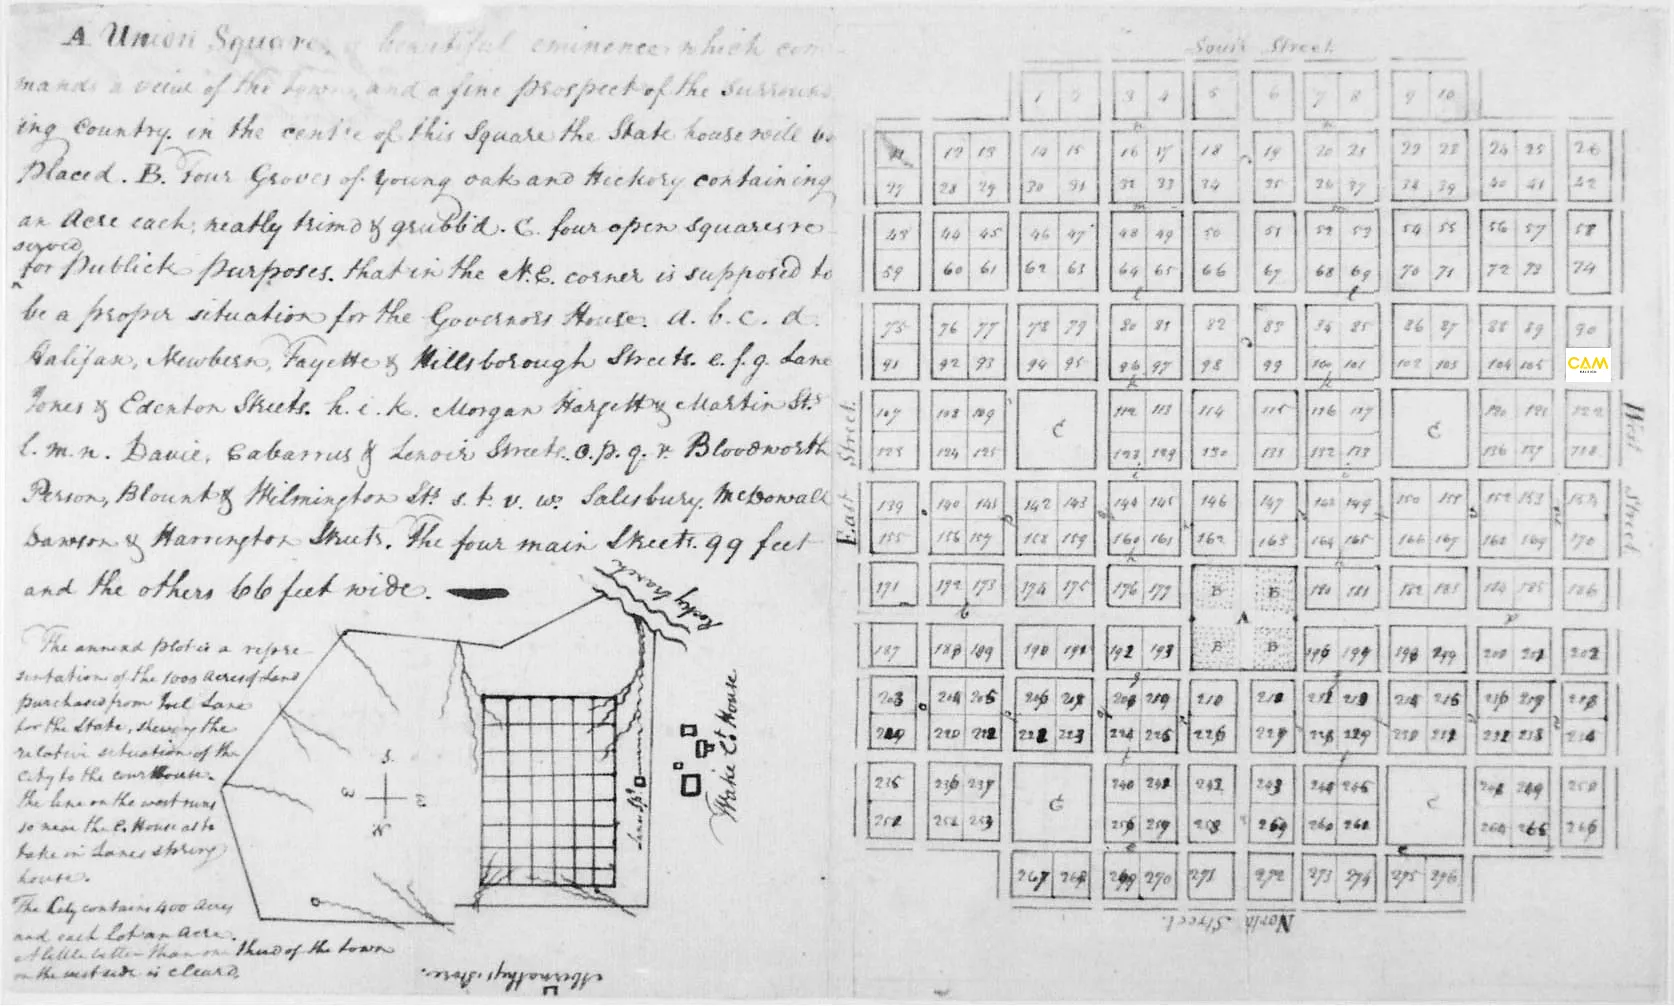 A Union Square, a beautiful eminence which com
mands a view of the town, and a fine prospect of the surround
ing country. in the centre of this Square the State house will be
Placed. B. Four Groves of young oak and Hickory containing
an Acre each, neatly trimd & grubb'd. C. four open squares re
served
for Publick Purposes. that in the N.E. corner is supposed to
be a proper situation for the Governors House. a. b. c. d.
Halifax, Newbern, Fayette & Hillsborough Streets. e. f. g. Lane
Jones & Edenton Streets. h. i. k. Morgan Hargett & Martin Sts
l. m. n. Davie, Cabarrus & Lenoir Streets. o. p. q. r. Bloodworth
Person, Blount & Wilmington Sts s. t. v. w. Salisbury, McDowall
Dawson & Harrington Streets. The four main Streets. 99 feet
and the others 66 feet wide.
The annexd plot is a repre-
sentation of the 1000 Acres of Land
purchased from Joel Lane
for the State, shewing the
relative situation of the
City to the courthouse.
the line on the west runs
so near the C. House as to
take in Lanes spring
house.
The City contains 400 Acres
and each Lot an Acre.
A little better than one third of the town
on the west side is cleard.
Rocky branch
S.
N
Lanes Sp.
Wake Ct. House
Abernathys Store.
South Street
1 2 3 4 5 6 7 8 9 10
11 12 13 14 15 16 17 18 19 20 21 22 23 24 25 26
27 28 29 30 31 32 33 34 35 36 37 38 39 40 41 42
43 44 45 46 47 48 49 50 51 52 53 54 55 56 57 58
59 60 61 62 63 64 65 66 67 68 69 70 71 72 73 74
75 76 77 78 79 80 81 82 83 84 85 86 87 88 89 90
91 92 93 94 95 96 97 98 99 100 101 102 103 104 105 CAM
107 108 109 C 112 113 114 115 116 117 C 120 121 122
123 124 125 128 129 130 131 132 133 136 137 138
East Street
West Street
139 140 141 142 143 144 145 146 147 148 149 150 151 152 153 154
155 156 157 158 159 160 161 162 163 164 165 166 167 168 169 170
171 172 173 174 175 176 177 B B 180 181 182 183 184 185 186
A
187 188 189 190 191 192 193 B B 196 199 198 299 200 201 202
203 204 205 206 207 208 209 210 211 212 213 214 215 216 217 218
219 220 221 222 223 224 225 226 227 228 229 230 231 232 233 234
235 236 237 C 240 241 242 243 244 245 C 248 249 250
251 252 253 256 257 258 259 260 261 264 265 266
267 268 269 270 271 272 273 274 275 276
North Street.